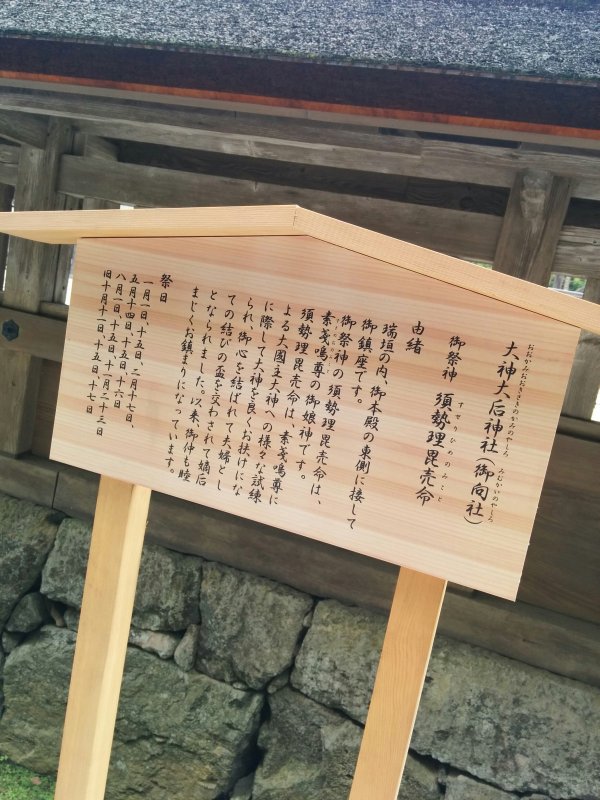 おおかみおおきさきのかみのやしろ
みむかいのやしろ
大神大后神社（御向社）
すせりひめのみこと
御祭神　須勢理毘売命
由緒
瑞垣の内、御本殿の東側に接して
御鎮座です。
御祭神の須勢理毘売命は、
素戔嗚尊の御娘神です。
須勢理毘売命は、素戔嗚尊に
よる大國主大神への様々な試練
に際して大神を良くお扶けにな
られ、御心を結ばれて夫婦とし
ての結びの盃を交わされて嫡后
となられました。以来、御仲も睦
まじくお鎮まりになっています。
祭日
一月一日、十五日、二月十七日、
五月十四日、十五日、十六日
八月一日、十五日、十一月二十三日
旧十月十一日、十五日、十七日